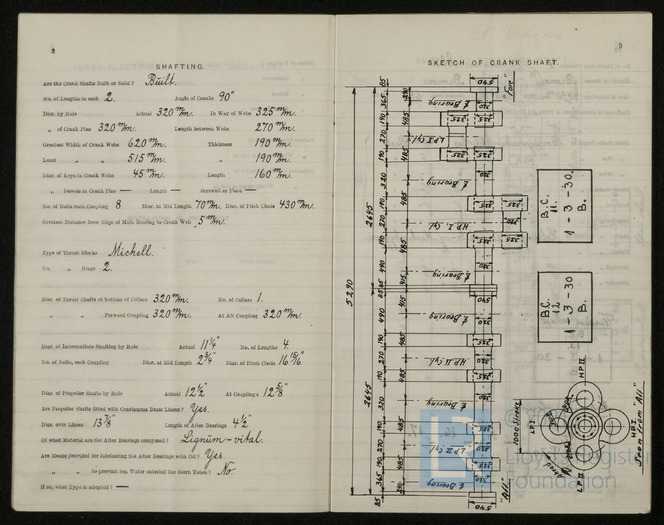 8
SHAFTING.
Are the Crank Shafts Built or Solid? Built.
No. of Lengths in each 2. Angle of Cranks 90°
Diar. by Rule Actual 320 m/m. In Way of Webs 325 m/m.
„ of Crank Pins 320 m/m. Length between Webs 270 m/m.
Greatest Width of Crank Webs 620 m/m. Thickness 190 m/m.
Least „ „ 515 m/m. „ 190 m/m.
Diar. of Keys in Crank Webs 45 m/m. Length 160 m/m.
„ Dowels in Crank Pins — Length — Screwed or Plain —
No. of Bolts each Coupling 8. Diar. at Mid Length 70 m/m. Diar. of Pitch Circle 430 m/m.
Greatest Distance from Edge of Main Bearing to Crank Web 5 m/m.
Type of Thrust Blocks Michell.
No. „ Rings 2.
Diar. of Thrust Shafts at bottom of Collars 320 m/m. No. of Collars 1.
„ „ Forward Coupling 320 m/m. At Aft Coupling 320 m/m.
Diar. of Intermediate Shafting by Rule Actual 11 1/4" No. of Lengths 4.
No. of Bolts, each Coupling Diar. at Mid Length 2 3/4" Diar. of Pitch Circle 16 15/16"
Diar. of Propeller Shafts by Rule Actual 12 1/2" At Couplings 12 5/8"
Are Propeller Shafts fitted with Continuous Brass Liners? Yes.
Diar. over Liners 13 7/8" Length of After Bearings 4 1/2"
Of what Material are the After Bearings composed? Lignum-vitæ.
Are Means provided for lubricating the After Bearings with Oil? Yes.
„ „ to prevent Sea Water entering the Stern Tubes? No.
If so, what Type is adopted? —
9
SKETCH OF CRANK SHAFT.
"Fore"
540
85
365
230
190
485
270
190
320
2645
5290
℄ Bearing
LP I Cyl
℄ Bearing
HP. I. Cyl
℄ Bearing
490
415
85 85
540
℄ Bearing
HP II Cyl
℄ Bearing
LP II Cyl
℄ Bearing
2645
"Aft"
540
1000 Stroke
B.C.
11.
1-3-30.
B.
B.C.
12.
1-3-30
B.
HP II
LP I
HP I
LP II
Ahead
Seen from "Aft"
Lloyd's Register
Foundation